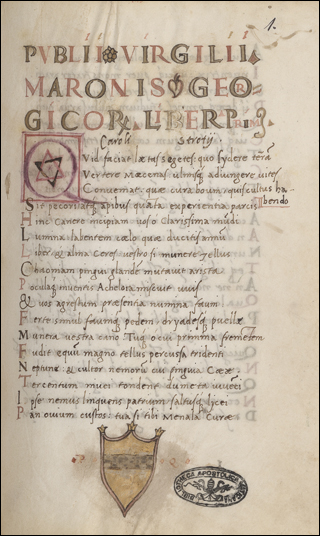 1.
PVBLII VIRGILII
MARONIS GEOR
GICORꝜ LIBER PRI
Caroli Strozij
Quid faciat lætas segetes: quo sydere terrã
Vertere Mæcenas ulmisq; adiungere vites
Conveniat: quæ cura boum: qui scultus ha
bendo
Sit pecori: atq; apibus quãta experientia parcis
Hinc Canere incipiam uos o Clarissima mũdi
Lumina labentem cælo quæ ducitis annũ
Liber & alma Ceres vestro si munere Tellus
Chaoniam pingui glande mutauit arista
Poculaq; inventis Acheloia miscuit uvis
& uos agrestum præsentia numina fauni
Ferte simul fauniq; pedem dryadesq; puellæ
Munera vestra cano Tuq; o cui prima frementem
Fudit equũ magno tellus percussa tridenti
Neptune & cultor nemorũ cui pinguia Cææ
Tercentum nivei tondent dumeta iuvenci
Ipse nemus linquens patrium saltusq; lycei
Pan ovium custos: tua si tibi Menala Curæ
BIBLIOTHECA APOSTOLICA VATICANA